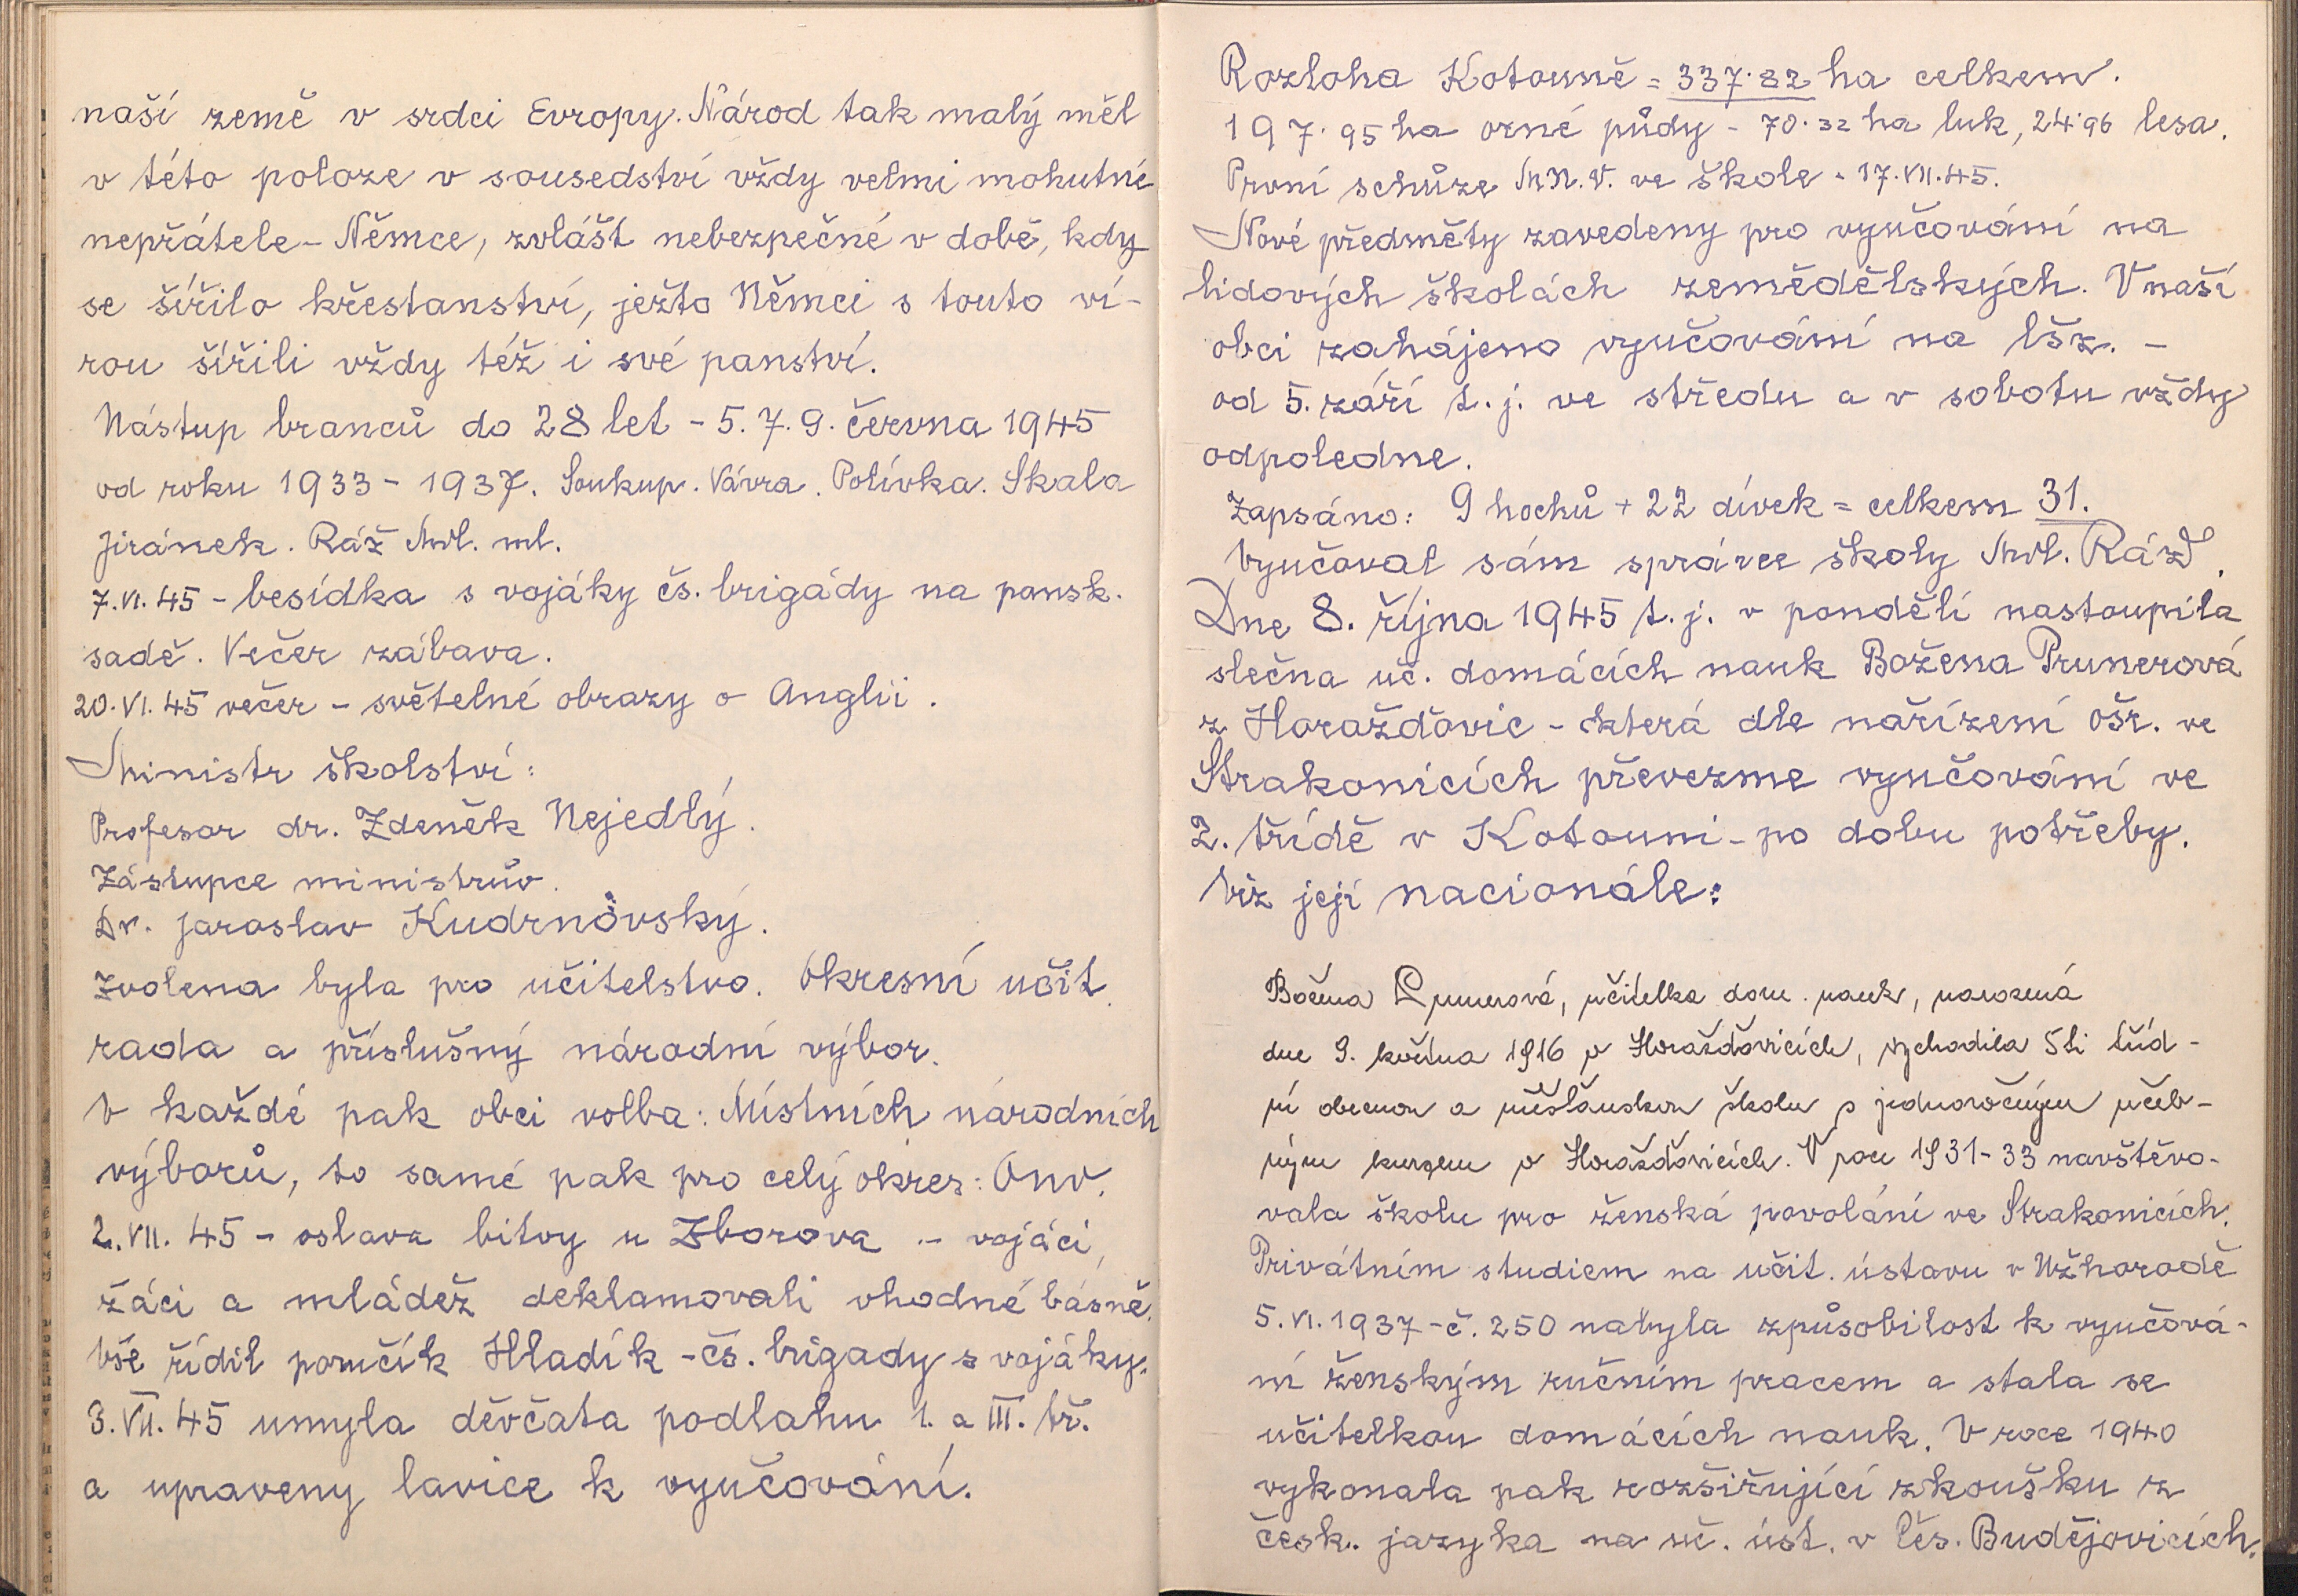 naší země v srdci Evropy. Národ tak malý měl
v této poloze v sousedství vždy velmi mohutné
nepřátele - Němce, zvlášt nebezpečné v době, kdy
se šířilo křestanství, ježto Němci s touto ví-
rou šířili vždy též i své panství.
Nástup branců do 28 let - 5. 7. 9. června 1945
od roku 1933 - 1937. Soukup. Vávra. Polívka. Skala
Jiránek. Ráž Mil. ml.
7. VI. 45 - besídka s vojáky čs. brigády na pansk.
sadě. Večer zábava.
20. VI. 45 večer - světelné obrazy o Anglii.
Ministr školství:
Profesor dr. Zdeněk Nejedlý.
Zástupce ministrův.
Dr. Jaroslav Kudrnovský.
Zvolena byla pro učitelstvo. Okresní učit.
rada a příslušný národní výbor.
V každé pak obci volba: Místních národních
výborů, to samé pak pro celý okres: Onv.
2. VII. 45 - oslava bitvy u Zborova - vojáci,
žáci a mládež deklamovali vhodné básně.
Vše řídil poručík Hladík - čs. brigady s vojáky.
3. VII. 45 umyla děvčata podlahu 1. a III. tř.
a upraveny lavice k vyučování.
Rozloha Kotouně = 337·82 ha celkem.
197·95 ha orné půdy - 70·32 ha luk, 24·96 lesa.
První schůze M.N.V. ve škole - 17. VII. 45.
Nové předměty zavedeny pro vyučování na
lidových školách zemědělských. V naší
obci zahájeno vyučování na lšz. -
od 5. září t. j. ve středu a v sobotu vždy
odpoledne.
Zapsáno: 9 hochů + 22 dívek = celkem 31.
Vyučoval sám správce školy Mil. Ráž.
Dne 8. října 1945 t. j. v pondělí nastoupila
slečna uč. domácích nauk Božena Prunerová
z Horažďovic - která dle nařízení ošr. ve
Strakonicích převezme vyučování ve
2. třídě v Kotouni - po dobu potřeby.
Viz její nacionále:
Božena Prunerová, učitelka dom. nauk, narozená
dne 9. května 1916 v Horažďovicích, vychodila 5ti tříd-
ní obecnou a měšťanskou školu s jednoročným učeb-
ným kurzem v Horažďovicích. V roce 1931-33 navštěvo-
vala školu pro ženská povolání ve Strakonicích.
Privátním studiem na učit. ústavu v Užhorodě
5. VI. 1937 - č. 250 nabyla způsobilost k vyučová-
ní ženským ručním pracem a stala se
učitelkou domácích nauk. V roce 1940
vykonala pak rozšiřující zkoušku z
česk. jazyka na uč. úst. v Čes. Budějovicích.